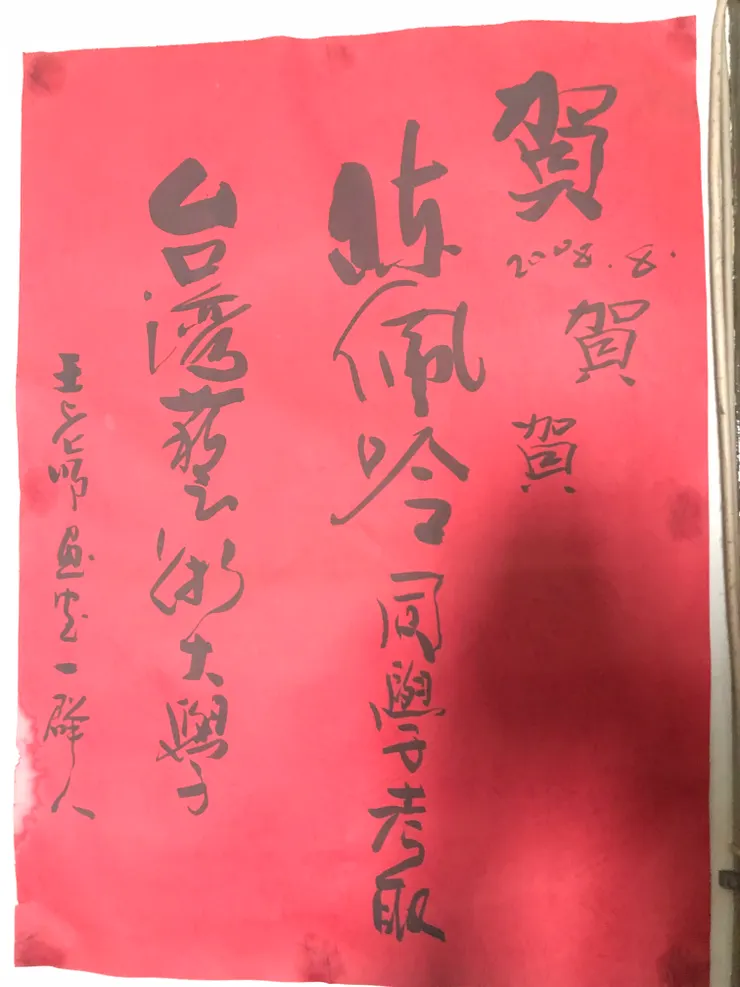 賀
2008.8.
賀
賀
陳佩吟同學考取
台灣藝術大學
王老師畫室一群人